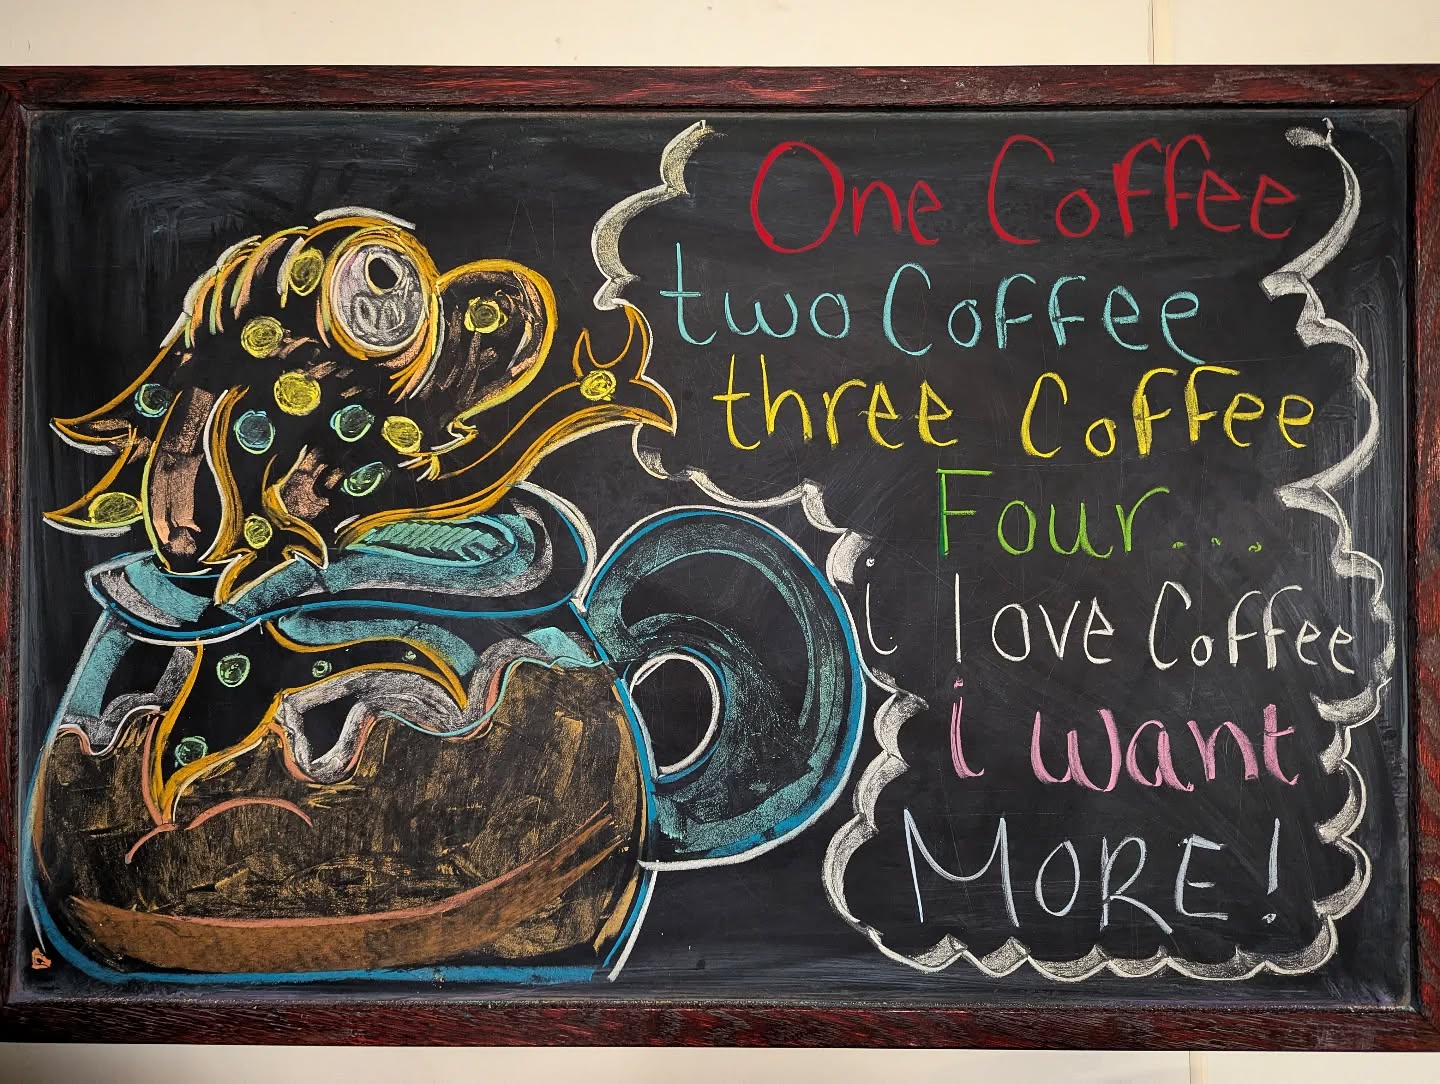 One Coffee
two Coffee
three Coffee
Four...
i love Coffee
i want
MORE!